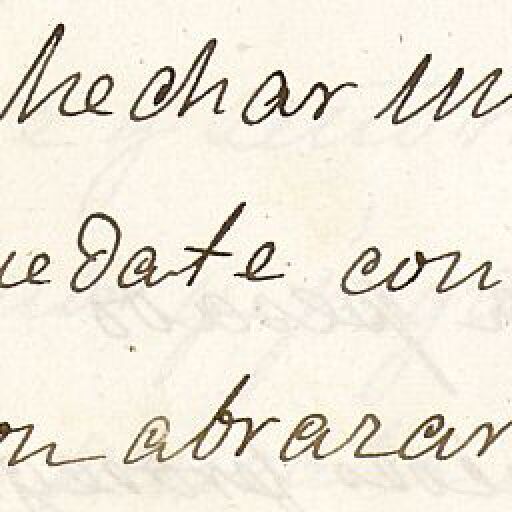 hechar un
uedate con
on abrazar